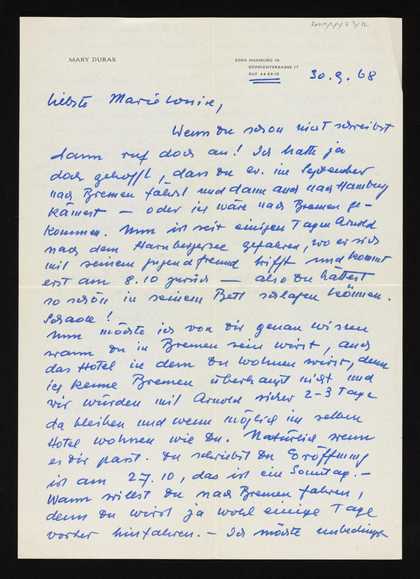 MARY DURAS
2000 HAMBURG 76
30.9.68
liebste Marie Louise,
Wenn Du schon nicht schreibst
dann ruf doch an! Ich hatte ja
doch gehofft, dass Du ev. im September
nach Bremen fährst und dann auch nach Hamburg
kämest – oder ich wäre nach Bremen ge-
kommen. Nun ist seit einigen Tagen Arnold
nach dem Starnbergersee gefahren, wo er sich
mit seinem Jugendfreund trifft und kommt
erst am 8.10 zurück – also Du hättest
so schön in seinem Bett schlafen können.
Schade!
Nun möchte ich von Dir genau wissen
wann Du in Bremen sein wirst, auch
das Hotel in dem Du wohnen wirst, denn
ich kenne Bremen überhaupt nicht und
wir würden mit Arnold sicher 2–3 Tage
da bleiben und wenn möglich im selben
Hotel wohnen wie Du. Natürlich wenn
es Dir passt. Du schriebst die Eröffnung
ist am 27.10, das ist ein Sonntag. –
Wann willst Du nach Bremen fahren,
denn Du wirst ja wohl einige Tage
vorher hinfahren. – Ich möchte unbedingt